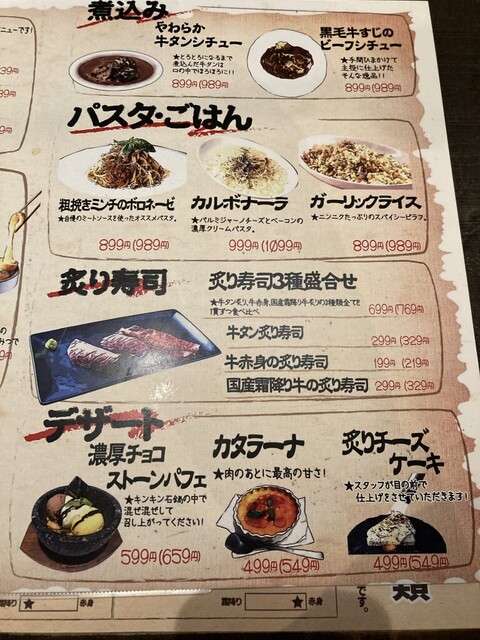 煮込み
やわらか
牛タンシチュー
★とろとろになるまで
煮込んだ牛タンは
口の中でほろほろに!!
899円(989円)
黒毛牛すじの
ビーフシチュー
★手間ひまかけて
主役に仕上げた
そんな逸品!!
899円(989円)
パスタ・ごはん
粗挽きミンチのボロネーゼ
★自慢のミートソースを使ったオススメパスタ。
899円(989円)
カルボナーラ
★パルミジャーノチーズとベーコンの
濃厚クリームパスタ。
999円(1099円)
ガーリックライス
★ニンニクたっぷりのスパイシーピラフ。
899円(989円)
炙り寿司
炙り寿司3種盛合せ
★牛タン炙り、牛赤身、国産霜降り牛炙りの3種類全てを
1貫ずつ食べ比べ
699円(769円)
牛タン炙り寿司
299円(329円)
牛赤身の炙り寿司
199円(219円)
国産霜降り牛の炙り寿司
299円(329円)
デザート
濃厚チョコ
ストーンパフェ
★キンキン石鍋の中で
混ぜ混ぜして
召し上がってください!
599円(659円)
カタラーナ
★肉のあとに最高の甘さ!
499円(549円)
炙りチーズ
ケーキ
★スタッフが目の前で
仕上げをさせていただきます!
499円(549円)
霜降り
★
赤身
霜降り
★
赤身
です。
類